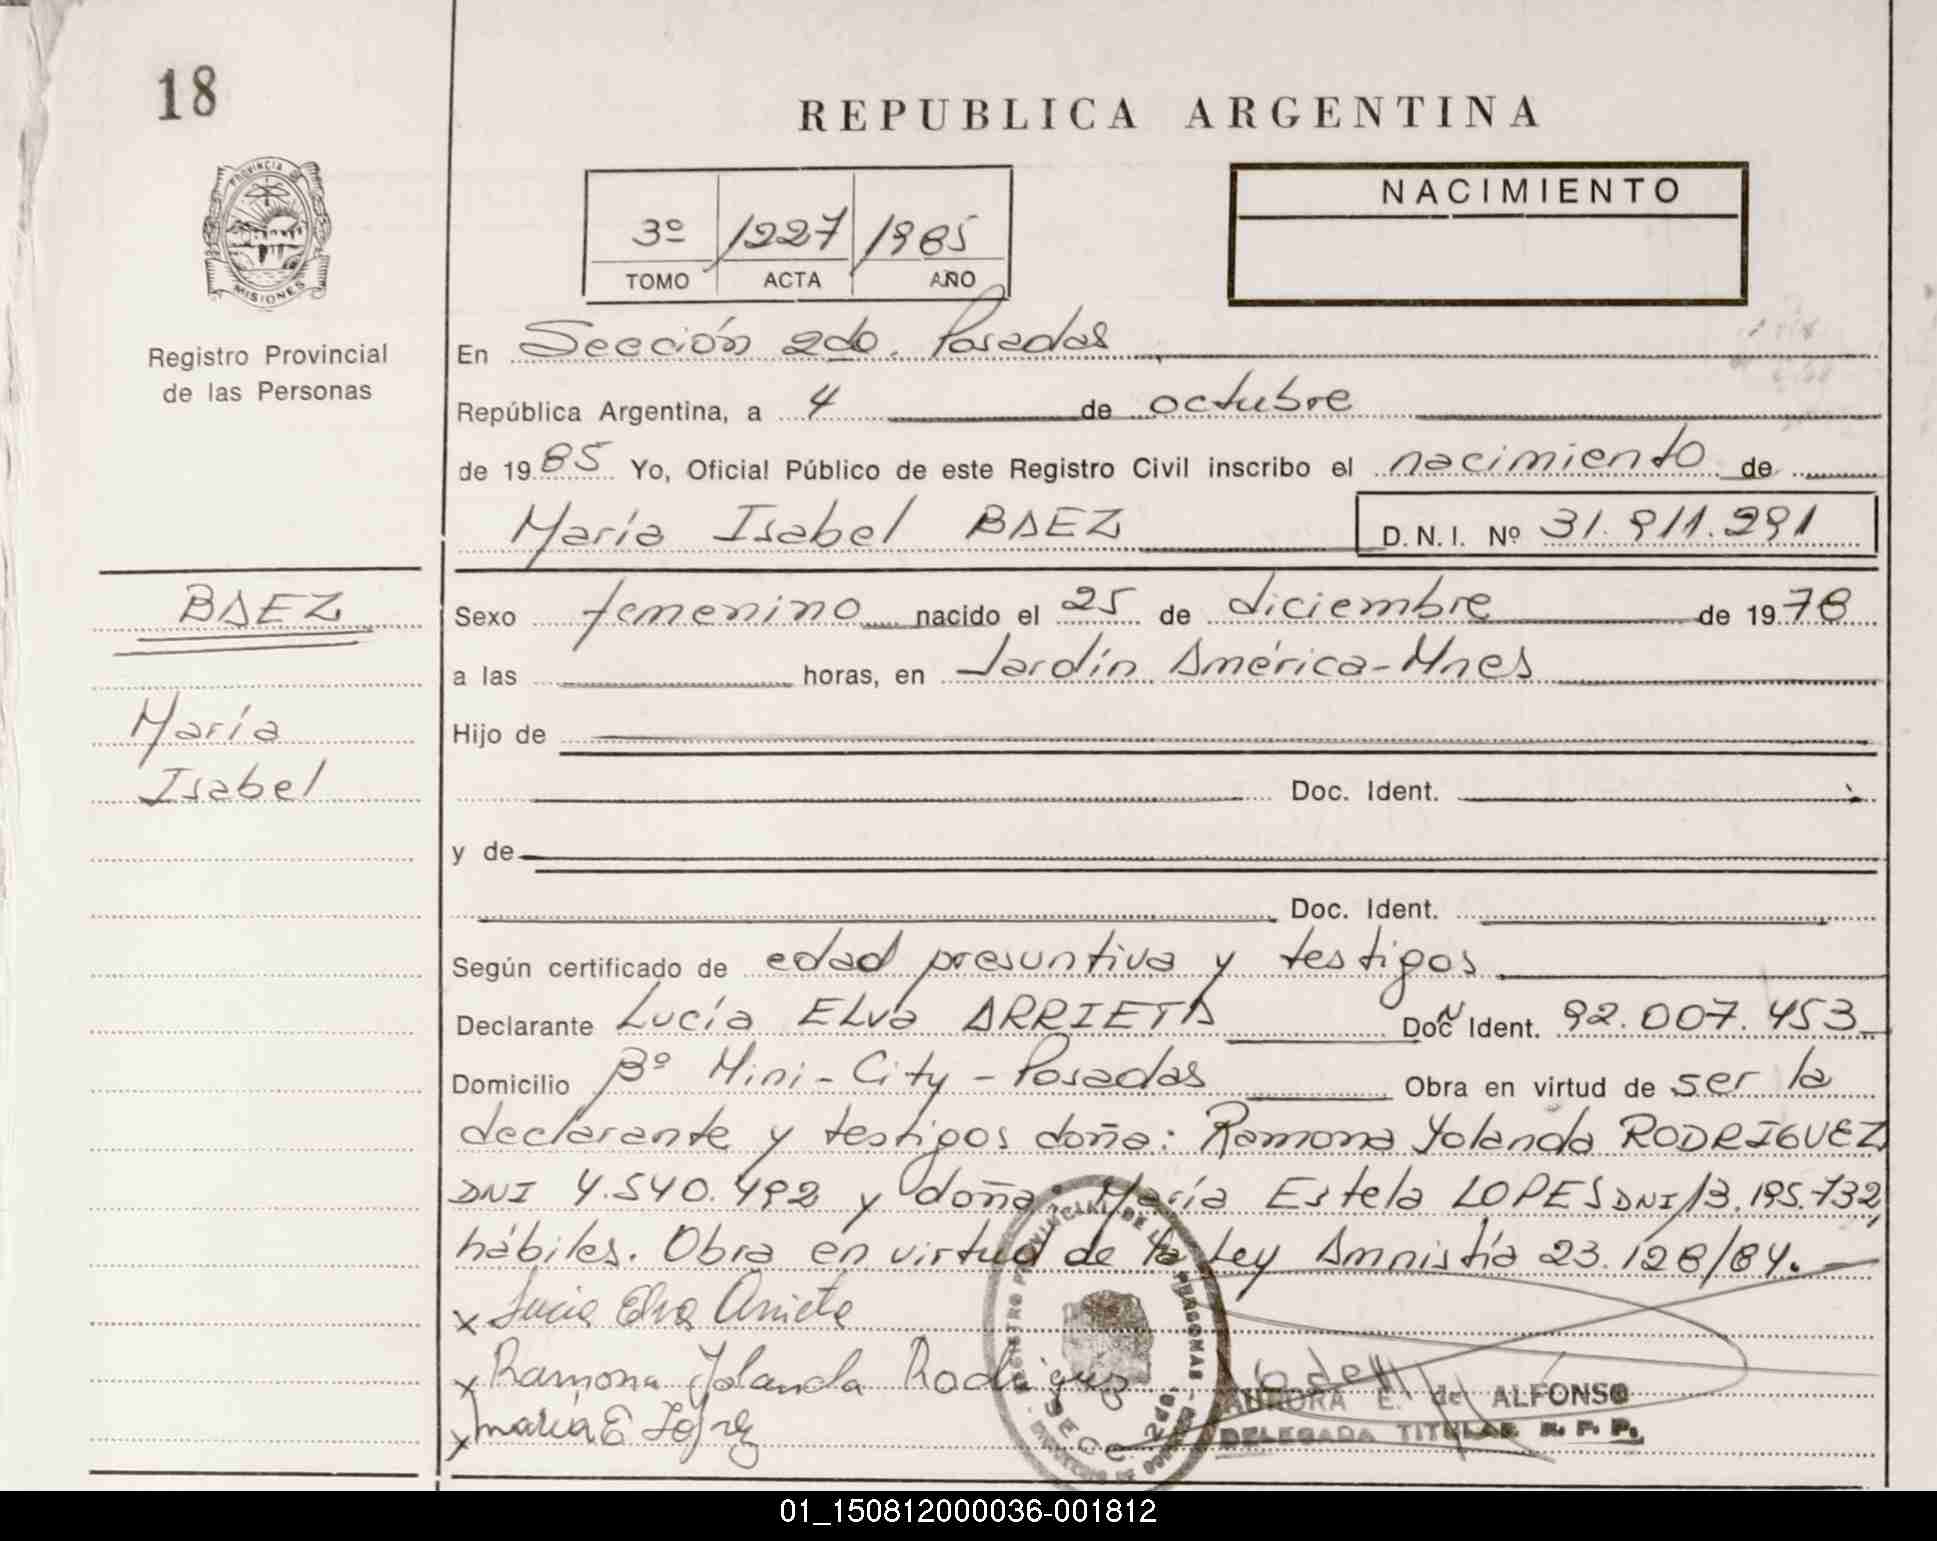 18
REPUBLICA ARGENTINA
NACIMIENTO
3º 1227 1985
TOMO ACTA AÑO
PROVINCIA DE
MISIONES
Registro Provincial
de las Personas
En Sección 2do. Posadas
República Argentina, a 4 de octubre
de 1985 Yo, Oficial Público de este Registro Civil inscribo el nacimiento de
María Isabel BAEZ D.N.I. Nº 31.911.291
BAEZ
María
Isabel
Sexo femenino nacido el 25 de diciembre de 1978
a las horas, en Jardín América-Mnes
Hijo de
Doc. Ident.
y de
Doc. Ident.
Según certificado de edad presuntiva y testigos
Declarante Lucía ELva ARRIETA Doc Ident. 92.007.453
Domicilio Bº Mini-City-Posadas Obra en virtud de ser la
declarante y testigos doña: Ramona Yolanda RODRIGUEZ
DNI 4.540.492 y doña: María Estela LOPES DNI 13.195.732,
hábiles. Obra en virtud de la Ley Amnistía 23.128/84.
x Lucia Elva Arrieta
x Ramona Yolanda Rodriguez
x maria E Lopez
REGISTRO PROVINCIAL DE LAS PERSONAS
SECC
AURORA E. de ALFONSO
DELEGADA TITULAR R. P. P.
01_150812000036-001812